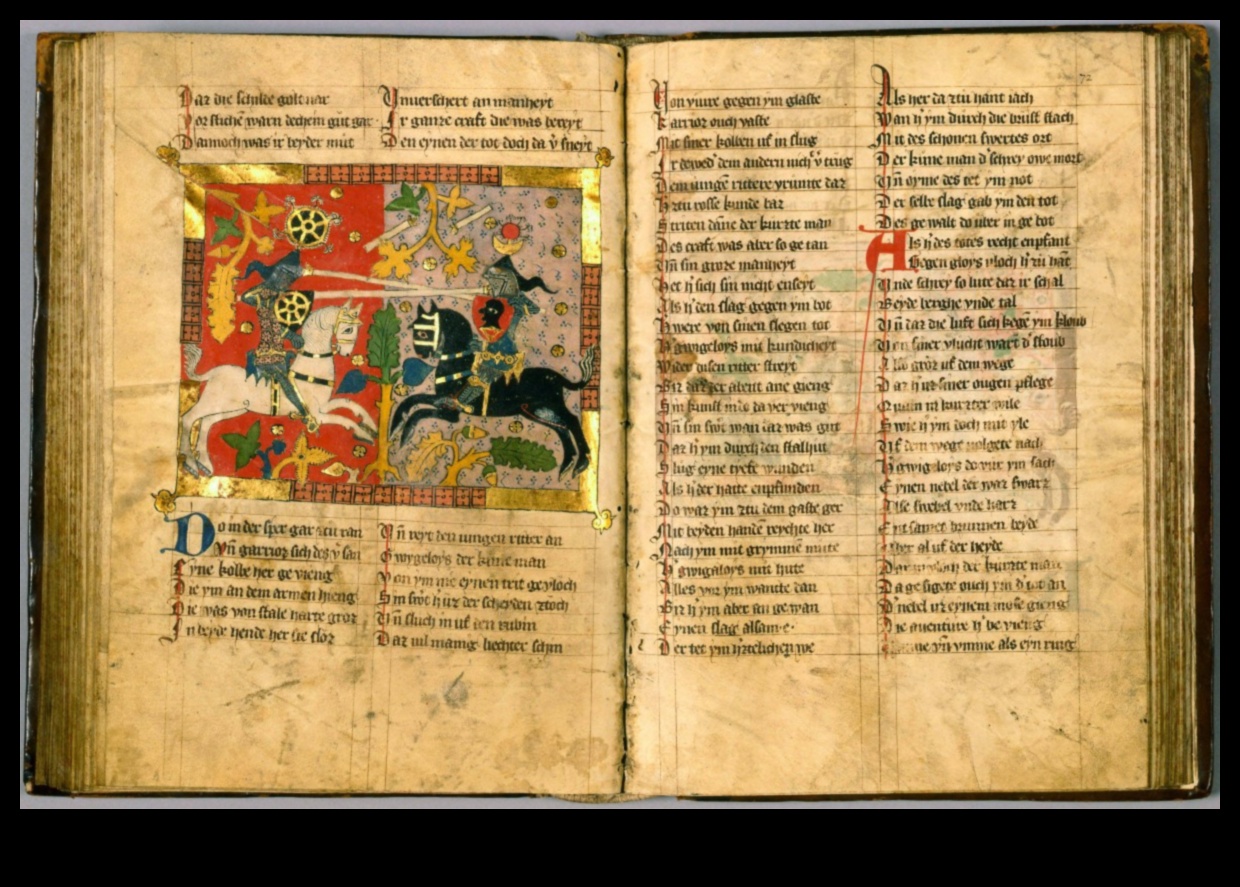 Daz die schilde golt var
Vor stiche warn dechem gut gar
Dannoch was ir beyder mut
Vnuerschert an manheyt
Ir ganze craft die was bereyt
Den eynen der tot doch da v̾ sneyt
Do in der sper gar zu ran
Vn̄ garrioz sich des v̾ san
Eyne kolbe her ge vieng
Die ym an dem armen hieng
Die was von stale harte groz
In beyde hende her sie sloz
Vn̄ reyt den iungen ritter an
Gwygeloys der kune man
Von ym nie eynen trit ge vloch
Sin swt̾ h̾ uz der scheyden zoch
Vn̄ sluch in uf den rubin
Daz uil manig liechter schin
72
Von viure gegen ym glaste
karrioz ouch vaste
Mit siner kolben uf in slug
Ir dewed̾ dem andern nich v̾ trug
Dem iungē rittere
H̾ zu rosse kunde baz
Striten dāne der kurzte man
Des craft was aber so ge tan
Vn̄ sin groze manheyt
Het h̾ sich sin nicht
Als h̾ den slag gegen ym bot
H̾ were von sinen slegen tot
H̾ gwigeloys mit kundicheyt
Wider disen ritter streyt
Biz daz der abent ane gieng
Sin kunst in da ver vieng
Vn̄ sin swt̾ wan iz was gut
Daz h̾ ym durch den stalhut
Slug eyne tyefe wunden
Als h̾ der hatte enpfunden
Do waz ym ztu dem gaste ger
Mit beyden handē reychte her
Nach ym mit grymmē mute
H̾ gwigaloys mit hute
Alles vor ym wancte dan
Biz h̾ ym aber an ge wan
Eynen slag alsam e
Der tet ym h̾tzelichen we
Als her da ztu hant iach
Wan h̾ ym durch die brust stach
Mit des schonen swertes ort
Der kune man d̾ schrey owe mort
Vn̄ tet ym not
Der selbe slag gab ym den tot
Des ge walt do uber in ge bot
Als h̾ des todes recht enpfant
Gegen gloys vloch h̾ zu hāt
Vnde schrey so lute daz ir schal
Beyde berghe vnde tal
Vn̄ daz die luft sich kegē ym kloub
Von siner vlucht wart d̾ stoub
Also groz uf dem wege
Daz h̾ uz siner ougen pflege
Quam in kurzter wile
Swie h̾ ym doch mit yle
Vf dem wege volgete nach
H̾ gwigeloys do vur ym sach
Eynen nebel der waz swarz
Alse swebel vnde harz
Ent samet brunnen beyde
uf der heyde
Dar vloch der kurzte man
Da ge sigete ouch ym d̾ tot an
D̾ nebel uz eynem mose gieng
Die auentúre h̾ be vieng
vn̄ ymme als eyn ring